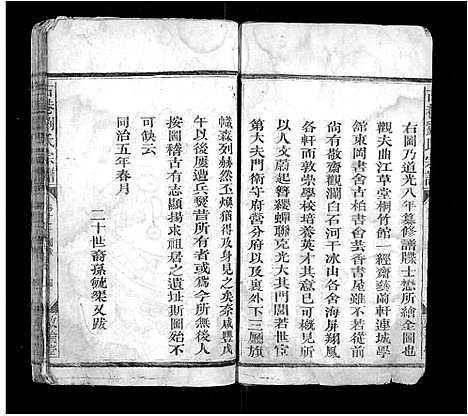 右圖乃道光八年纂修譜牒士懋所繪全圖也
觀夫曲江草堂桐竹館一經齋藝蘭軒連城學
館東岡書舍古柏書舍芸香書屋雖不若從前
尚有敬齋觀瀾白石河干冰山各舍海屏翔鳳
等而敦崇學校培養英才其意已可概見所
以人文蔚起簪纓蟬聯克光大其門閭若世宦
第大夫門衛守府營分府以及奧外下三廳旗
幟森列赫然丕煥猶得及身見之矣奈咸豐戊
午以後屢遭兵燹昔所有或為今所無後人
按圖稽古有志顯揚求祖居之遺址斯圖始不
可缺云
同治五年春月
二十世裔孫毓榘又跋